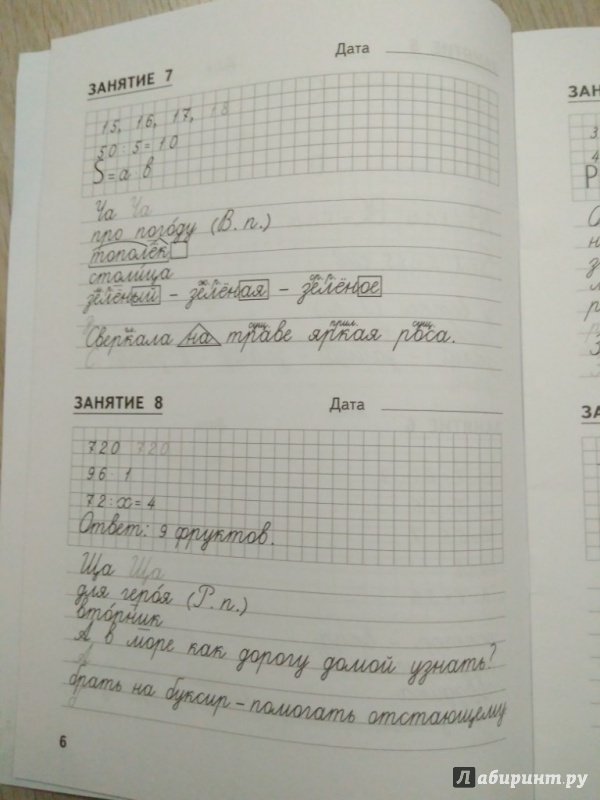 ЗАНЯТИЕ 7 Дата
15, 16, 17, 18
50 : 5 = 10
S = a · b
Ча Ча
про погоду (В. п.)
тополёк
столица
м. р. ж. р. ср. р.
зелёный – зелёная – зелёное
сущ. прил. сущ.
Сверкала на траве яркая роса.
ЗАНЯТИЕ 8 Дата
720 720
96 : 1
72 : x = 4
Ответ: 9 фруктов.
Ща Ща
для героя (Р. п.)
вторник
А в море как дорогу домой узнать?
брать на буксир – помогать отстающему
6
Лабиринт.ру